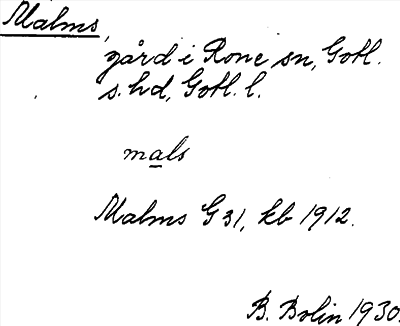 Malms,
gård i Rone sn, Gotl.
s. hd, Gotl. l.
mals
Malms G 31, kb 1912.
B. Bolin 1930.